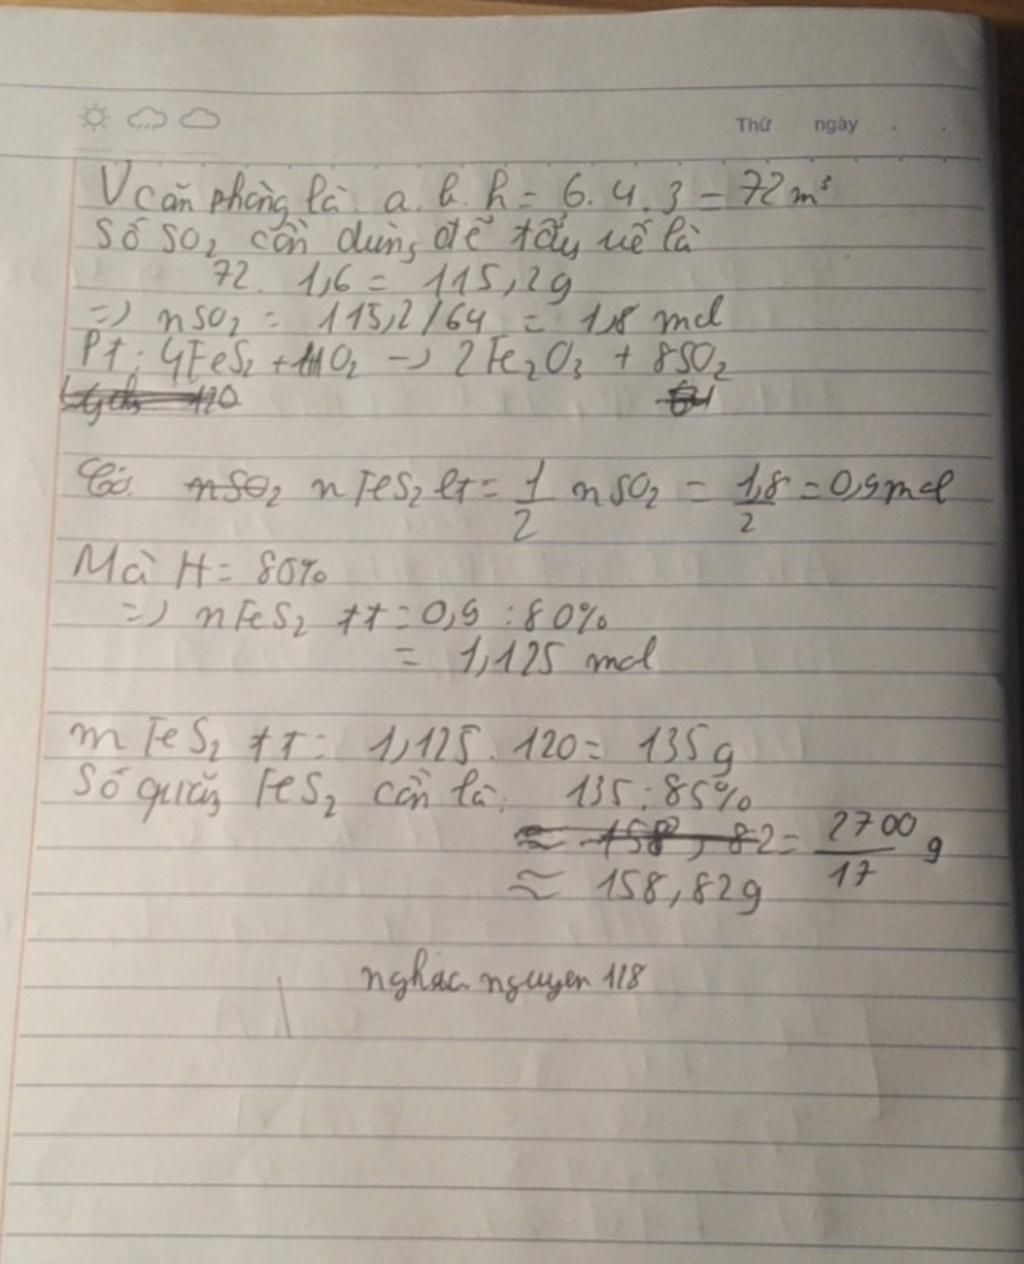 Thứ ngày
V căn phòng là a. b. h = 6. 4. 3 = 72 m³
Số SO₂ cần dùng để tẩy uế là
72. 1,6 = 115,2g
=> nSO₂ = 115,2/64 = 1,8 mol
Pt: 4FeS₂ + 11O₂ -> 2Fe₂O₃ + 8SO₂
120 64
Có nSO₂ nFeS₂ lt = 1/2 nSO₂ = 1,8/2 = 0,9 mol
Mà H = 80%
=> nFeS₂ tt = 0,9 : 80%
= 1,125 mol
mFeS₂ tt = 1,125. 120 = 135g
Số quặng FeS₂ cần là: 135 : 85%
≈ 158,82 = 2700/17 g
≈ 158,82g
nghac nguyen 118